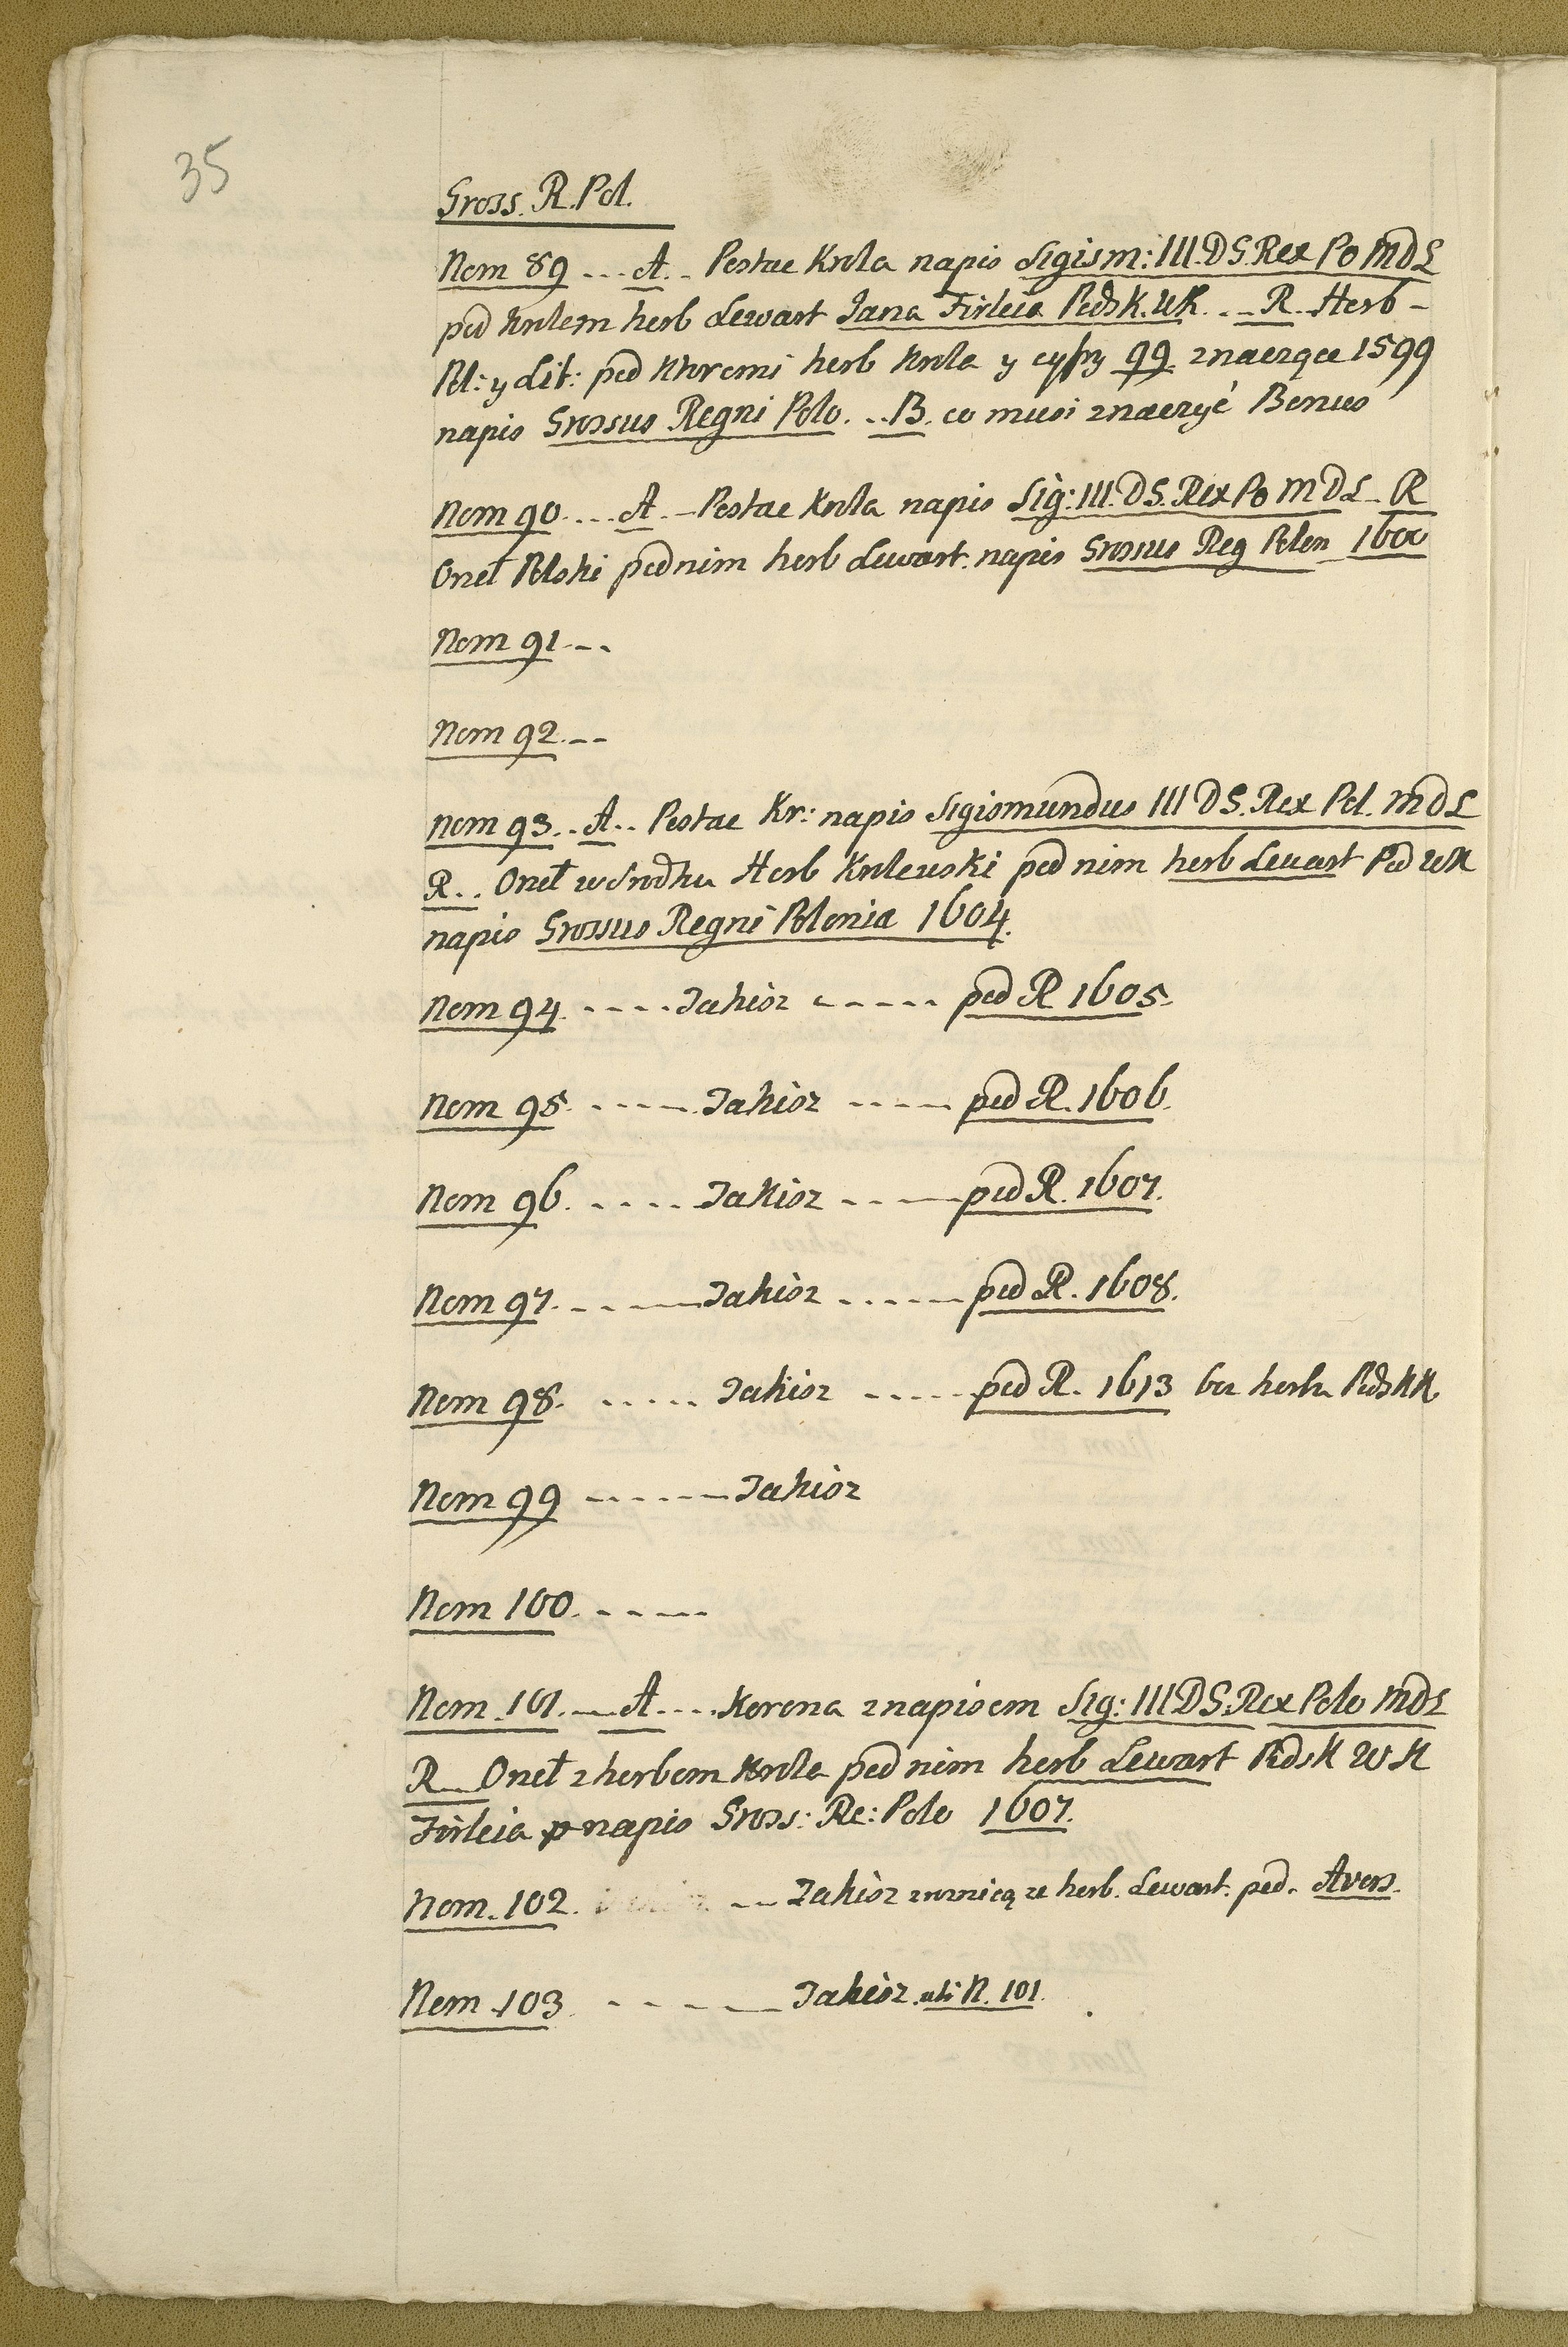 35
Gross. R. Pol.
Nom 89 ... A. - Postac Krola napis Sigism: III. D G. Rex Po M D L
pod Krolem herb Lewart Jana Firleia Pods K. WK. .. R. Herb -
Pol: y Lit: pod Ktoremi herb Krola y cyfry 99 znaczące 1599
napis Grossus Regni Polo. .. B. co musi znaczyć Bonus
Nom 90 .... A. - Postac Krola napis Sig: III. D G. Rex Po M D L - R
Oneł Polski pod nim herb Lewart. napis Grossus Reg Polon 1600
Nom 91 - - .
Nom 92. - -
Nom 93 .. A .. Postac Kr: napis Sigismundus III D G. Rex Pol. M D L
R .. Oneł w Srodku Herb Krolewski pod nim herb Lewart Pod WK
napis Grossus Regni Polonia 1604.
Nom 94. - - - - Jakisz - - - - - pod R 1605.
Nom 95. - - - - Jakisz - - - - pod R. 1606.
Nom 96. - - - - Jakisz - - - pod R. 1607.
Nom 97. - - - - Jakisz - - - - pod R. 1608.
Nom 98. ..... Jakisz - - - - pod R. 1613 bez herbu Pods KK
Nom 99 - - - - - Jakisz
Nom 100. - - - -
Nom. 101. - A .... Korona z napisem Sig: III D G. Rex Polo M D L
R Oneł z herbem Krola pod nim herb Lewart Pods K W K
Firleia napis Gross: Re: Polo 1607.
Nom. 102. - - Jakisz z roznicą ze herb. Lewart. pod. Avers.
Nom 103. - - - - Jakisz uti N. 101.